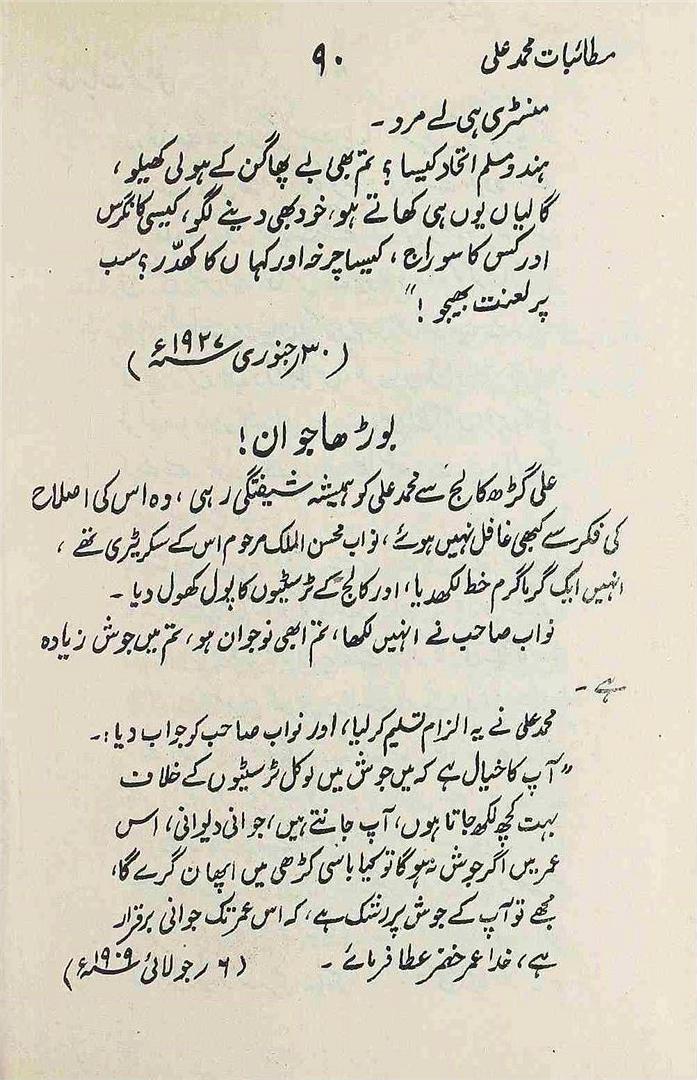 مطائبات محمد علی
۹۰
منسٹری ہی لے مرد ۔
ہندو مسلم اتحاد کیسا ؟ تم بھی بے پھاگن کے ہولی کھیلو ،
گالیاں یوں ہی کھاتے ہو، خود بھی دینے لگو، کیسی کانگرس
اور کس کا سوراج ، کیسا چرخہ اور کہاں کا کھدّر ؟ سب
پر لعنت بھیجو !"
( ۳۰ر جنوری ۱۹۲۷ء )
بوڑھا جوان !
علی گڑھ کالج سے محمد علی کو ہمیشہ شیفتگی رہی ، وہ اس کی اصلاح
کی فکر سے کبھی غافل نہیں ہوئے ، نواب محسن الملک مرحوم اس کے سکریٹری تھے ،
انہیں ایک گرما گرم خط لکھدیا، اور کالج کے ٹرسٹیوں کا پول کھول دیا ۔
نواب صاحب نے انہیں لکھا، تم ابھی نوجوان ہو، تم میں جوش زیادہ
ہے ۔
محمد علی نے یہ الزام تسلیم کر لیا، اور نواب صاحب کو جواب دیا :۔
" آپ کا خیال ہے کہ میں جوش میں لوکل ٹرسٹیوں کے خلاف
بہت کچھ لکھ جاتا ہوں، آپ جانتے ہیں، جوانی دیوانی، اس
عمر میں اگر جوش نہ ہوگا تو کیا باسی کڑھی میں ابھان گرے گا،
مجھے تو آپ کے جوش پر رشک ہے، کہ اس عمر تک جوانی برقرار
ہے، خدا عمر خضر عطا فرمائے ۔ ( ۶ر جولائی ۱۹۰۹ء )